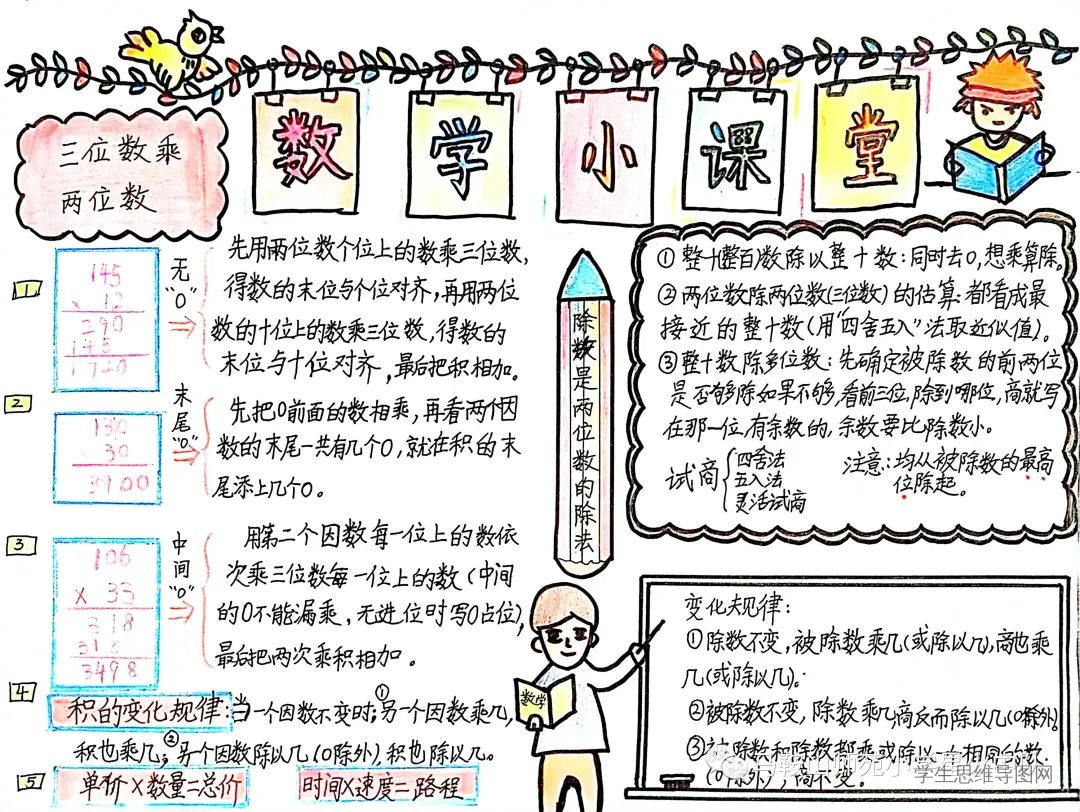 数学小课堂
三位数乘
两位数
1
145
× 12
290
145
1740
无
"0"
先用两位数个位上的数乘三位数,
得数的末位与个位对齐,再用两位
数的十位上的数乘三位数,得数的
末位与十位对齐,最后把积相加。
2
130
30
3900
末
尾
"0"
先把0前面的数相乘,再看两个因
数的末尾一共有几个0,就在积的末
尾添上几个0。
3
106
× 33
318
318
3498
中
间
"0"
用第二个因数每一位上的数依
次乘三位数每一位上的数(中间
的0不能漏乘,无进位时写0占位),
最后把两次乘积相加。
4
积的变化规律:当一个因数不变时;①另一个因数乘几,
积也乘几;②另个因数除以几(0除外),积也除以几。
5
单价×数量=总价 时间×速度=路程
除数是两位数的除法
①整十(整百)数除以整十数:同时去0,想乘算除。
②两位数除两位数(三位数)的估算:都看成最
接近的整十数(用"四舍五入"法取近似值)。
③整十数除多位数:先确定被除数的前两位
是否够除如果不够,看前三位,除到哪位,商就写
在那一位,有余数的,余数要比除数小。
试商{四舍法
五入法
灵活试商
注意:均从被除数的最高
位除起。
数学
变化规律:
①除数不变,被除数乘几(或除以几),商也乘
几(或除以几)。
②被除数不变,除数乘几商反而除以几(0除外)
③被除数和除数都乘或除以一个相同的数
(0除外),商不变。
学生思维导图网